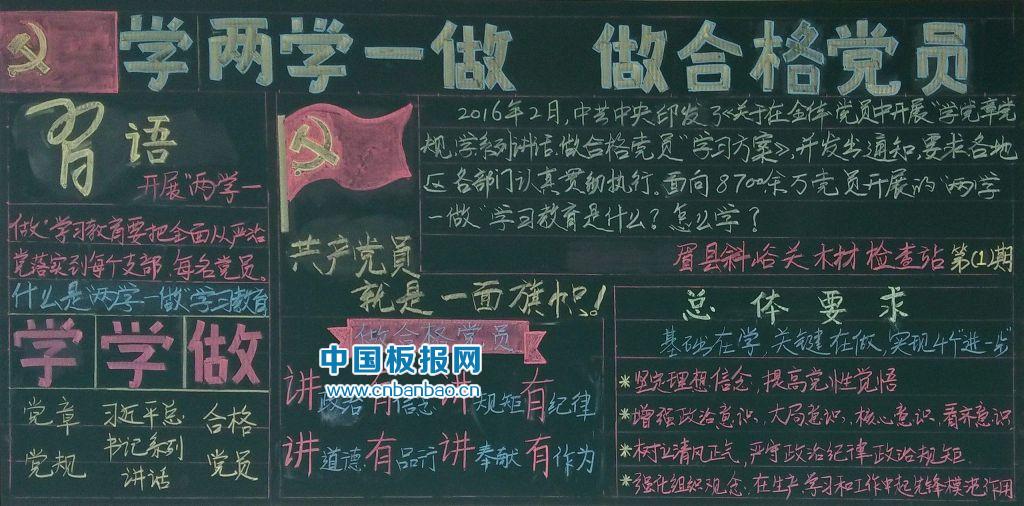 学两学一做 做合格党员
習语
开展"两学一
做"学习教育要把全面从严治
党落实到每个支部、每名党员。
什么是"两学一做"学习教育
学 学 做
党章
党规
习近平总
书记系列
讲话
合格
党员
共产党员
就是一面旗帜!
2016年2月,中共中央印发了《关于在全体党员中开展"学党章党
规,学系列讲话,做合格党员"学习方案》,并发出通知,要求各地
区各部门认真贯彻执行。面向8700余万党员开展的"两学
一做"学习教育是什么?怎么学?
眉县斜峪关木材检查站 第(1)期
做合格党员
讲政治 有信念 讲规矩 有纪律
讲道德 有品行 讲奉献 有作为
中国板报网
www.cnbanbao.cn
总体要求
基础在学,关键在做,实现4个"进一步"
*坚定理想信念,提高党性觉悟
*增强政治意识、大局意识、核心意识、看齐意识
*树立清风正气,严守政治纪律政治规矩
*强化组织观念,在生产学习和工作中起先锋模范作用